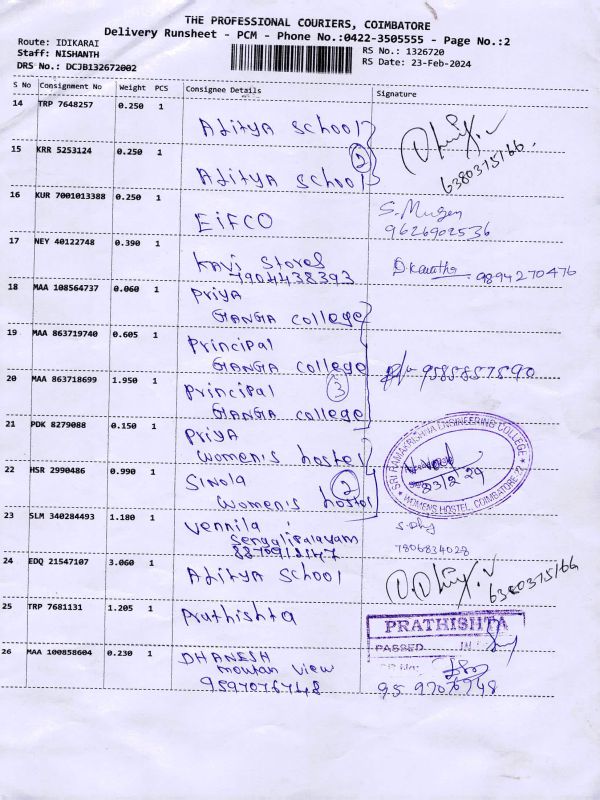 THE PROFESSIONAL COURIERS, COIMBATORE
Delivery Runsheet - PCM - Phone No.:0422-3505555 - Page No.:2
Route: IDIKARAI
Staff: NISHANTH
DRS No.: DCJB132672002
RS No.: 1326720
RS Date: 23-Feb-2024
S No Consignment No Weight PCS Consignee Details Signature
14 TRP 7648257 0.250 1
Aditya School
15 KRR 5253124 0.250 1
2
Aditya School
6380315166.
16 KUR 7001013388 0.250 1
EIFCO
S. Mugen
9626902536
17 NEY 40122748 0.390 1
Kavi Stores
7904438393
9894270476
18 MAA 108564737 0.060 1
Priya
GANGA College
19 MAA 863719740 0.605 1
Principal
GANGA College
9585857590
20 MAA 863718699 1.950 1
Principal
3
GANGA College
21 PDK 8279088 0.150 1
Priya
Women's hostel
22 HSR 2990486 0.990 1
Sinola
2
Women's hostel
SRI RAMAKRISHNA ENGINEERING COLLEGE
23/2/24
WOMEN'S HOSTEL, COIMBATORE
23 SLM 340284493 1.180 1
Vennila
Sengalipalayam
7806834028
24 EDQ 21547107 3.060 1
Aditya School
6380315166
25 TRP 7681131 1.205 1
Prathishta
PRATHISHTA
PASSED
26 MAA 100858604 0.230 1
DHANESH
Moutan View
9597076748
95 97076748